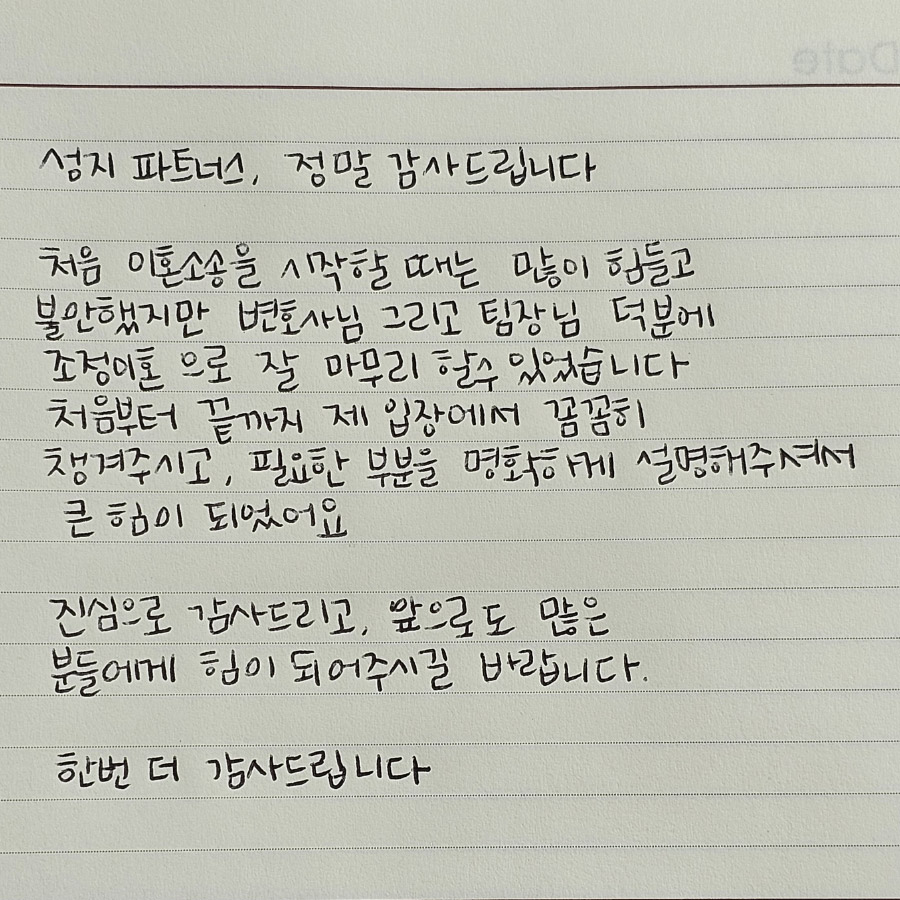 성지 파트너스, 정말 감사드립니다
처음 이혼소송을 시작할 때는 많이 힘들고
불안했지만 변호사님 그리고 팀장님 덕분에
조정이혼 으로 잘 마무리 할수 있었습니다
처음부터 끝까지 제 입장에서 꼼꼼히
챙겨주시고, 필요한 부분을 명확하게 설명해주셔서
큰 힘이 되었어요
진심으로 감사드리고, 앞으로도 많은
분들에게 힘이 되어주시길 바랍니다.
한번 더 감사드립니다
Date